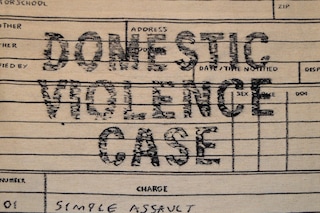 OR SCHOOL
ZIP
OTHER
ADDRESS
HER
FIED BY
DATE/TIME NOTIFIED
DISP
DOMESTIC
VIOLENCE
SEX
DOB
CASE
NUMBER
CHARGE
01
SIMPLE ASSAULT